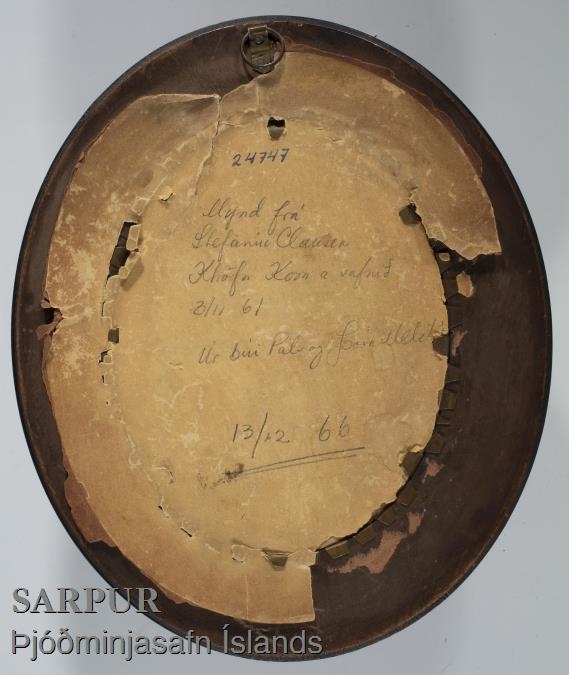 24747
Mynd frá
Stefaníu Clausen
Khöfn Kom a safnið
3/11 61
Úr búi Páls og Þóra Melsteð
13/12 66
SARPUR
Þjóðminjasafn Íslands